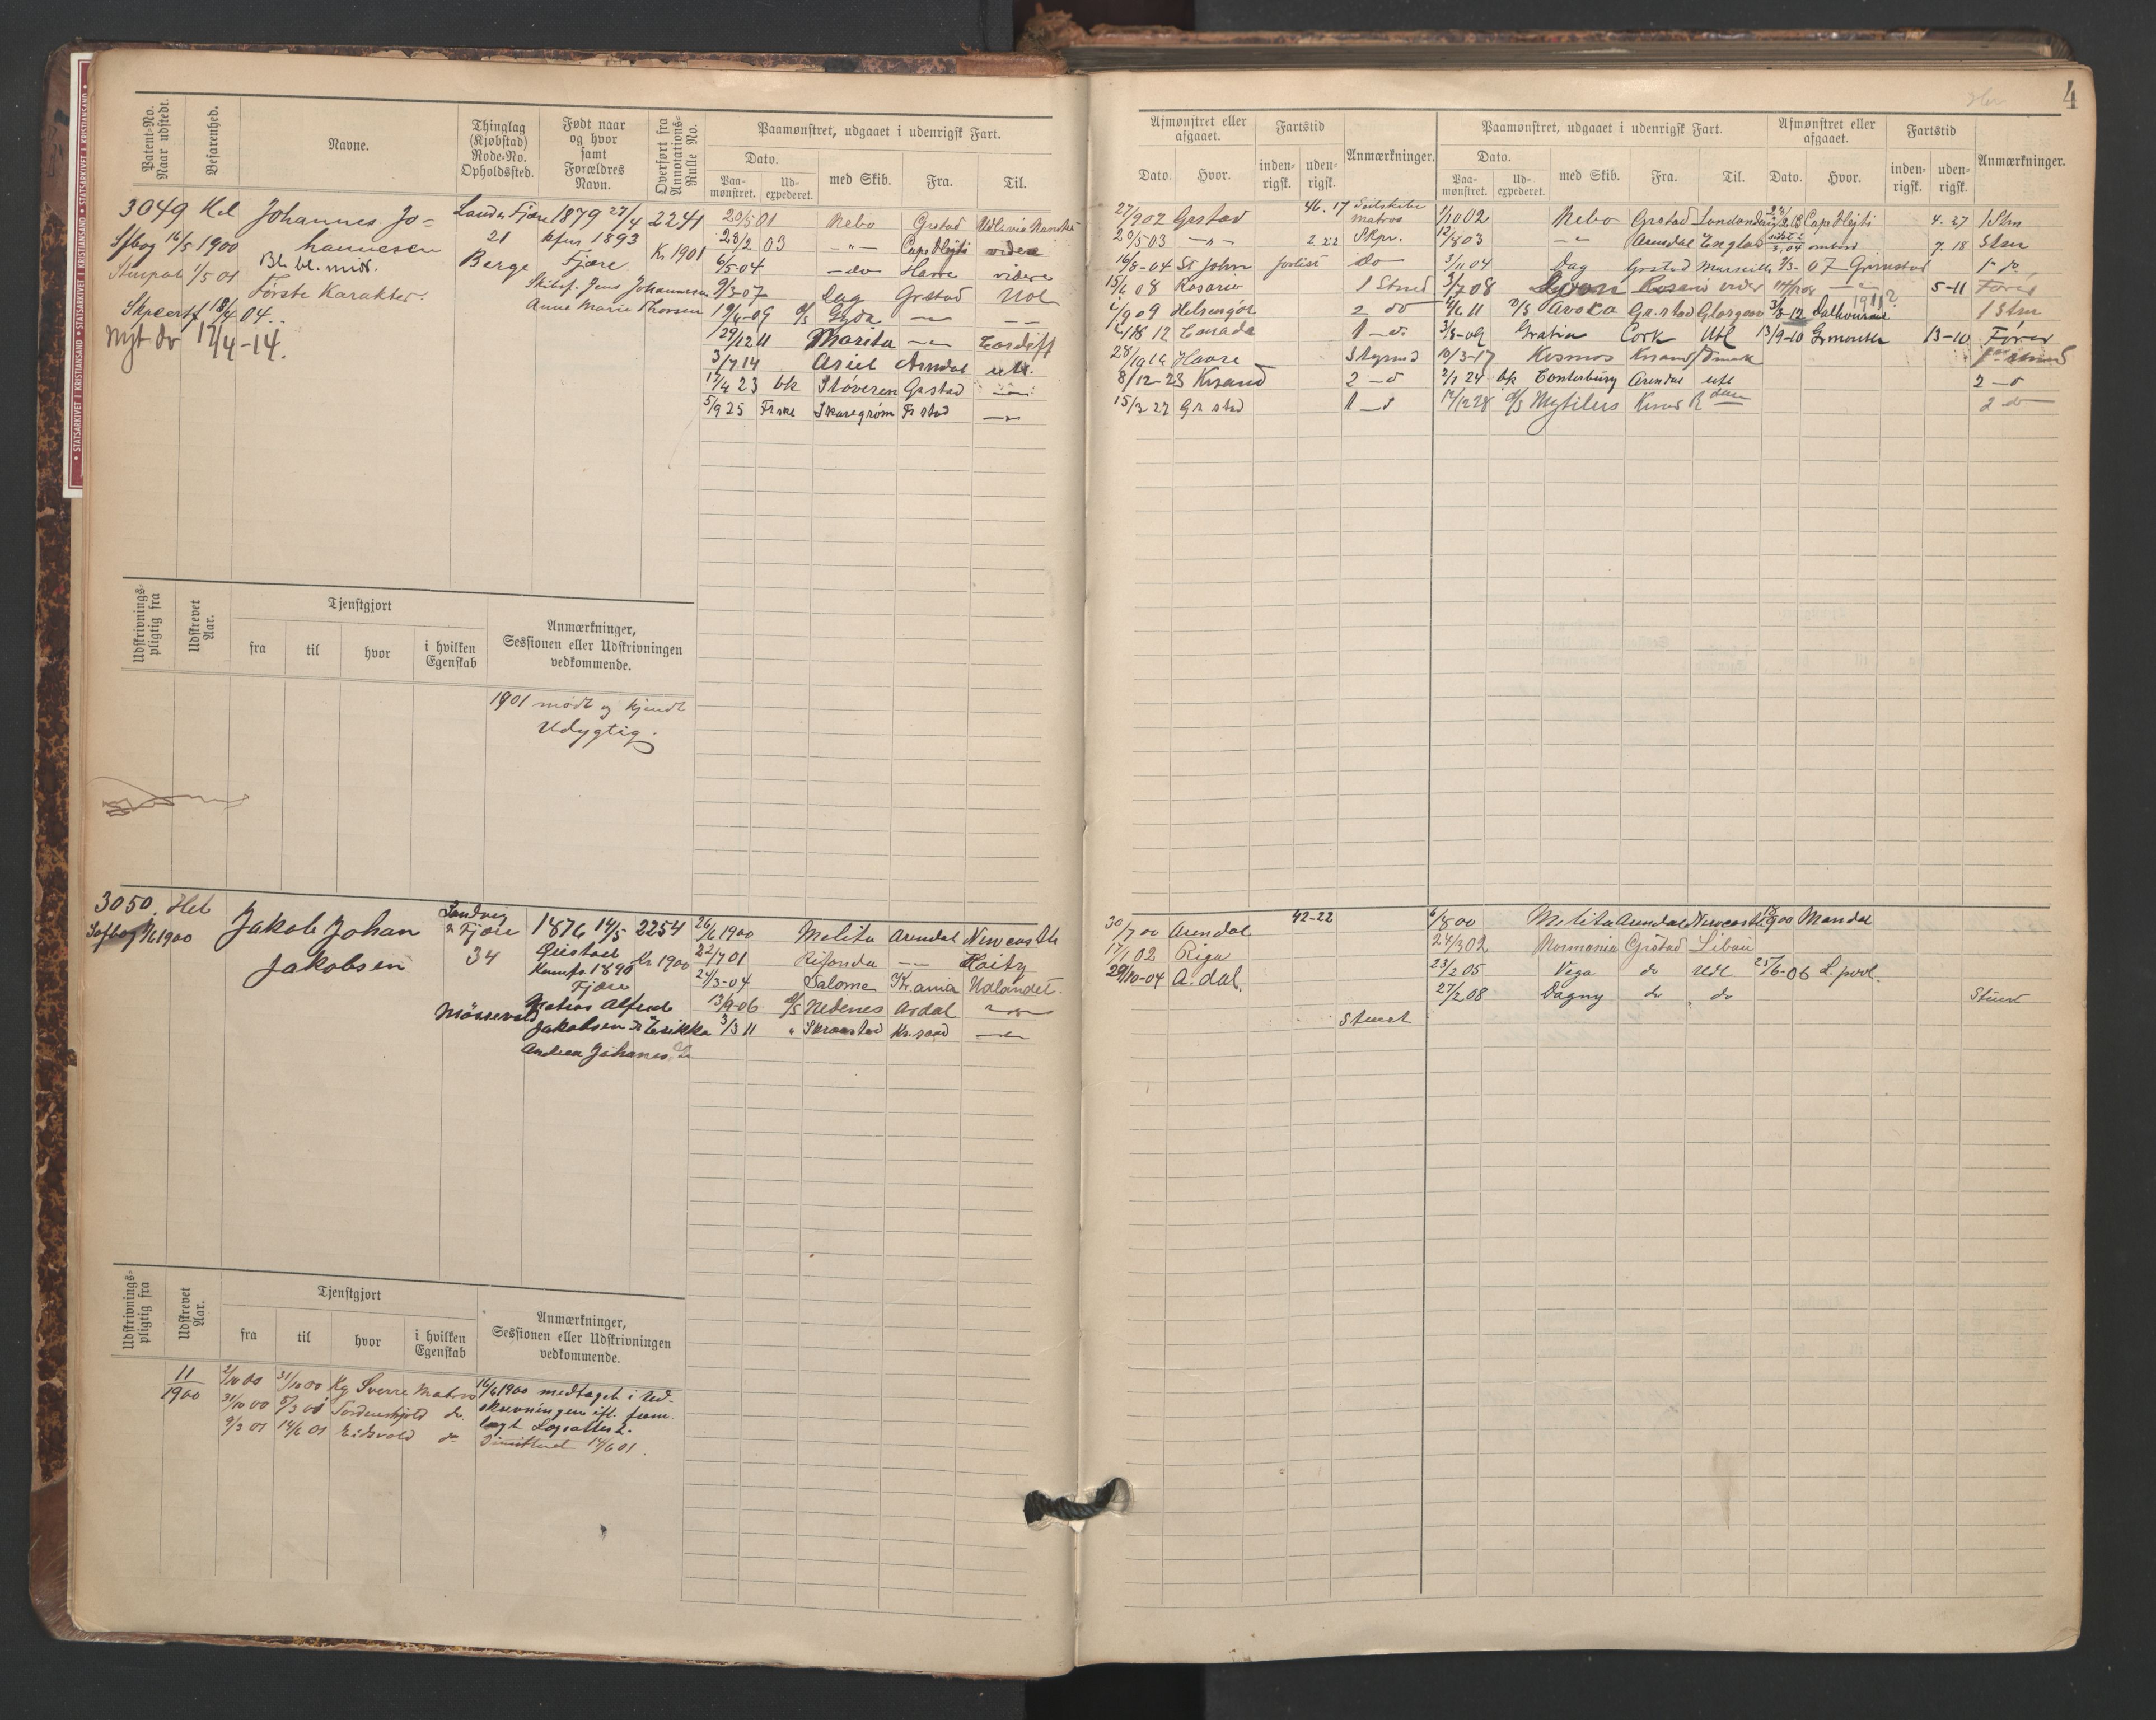 4
STATSARKIVET I KRISTIANSAND • STATSARKIVET I KRISTIANSAND • STATSARKIVET I KRISTIANSAND
Patent-No. Naar udstedt.
Befarenhed.
Navne.
Thinglag (Kjøbstad) Rode-No. Opholdssted.
Født naar og hvor samt Forældres Navn.
Overført fra Annotations-Rulle No.
Paamønstret, udgaaet i udenrigsk Fart.
Dato.
Paa-mønstret.
Ud-expederet.
med Skib.
Fra.
Til.
Afmønstret eller afgaaet.
Dato.
Hvor.
Fartstid
inden-rigsk.
uden-rigsk.
Anmærkninger.
Paamønstret, udgaaet i udenrigsk Fart.
Dato.
Paa-mønstret.
Ud-expederet.
med Skib.
Fra.
Til.
Afmønstret eller afgaaet.
Dato.
Hvor.
Fartstid
inden-rigsk.
uden-rigsk.
Anmærkninger.
3049
Johannes Jo-
hannesen
Sfbog 16/5 1900
Bl. bl. midt.
Første Karakter.
1/5 01
Skpcertf 18/4 04
Nyt do 17/4-14.
Fjære
21
Berge
1879 27/4
kfm 1893
Fjære
Skibsf. Jens Johannesen
Anne Marie Thorsen
2241
Kr 1901
20/5 01 Nebo Grstad
28/2 03 -"- Cap Hayti videre
6/5 04 -do- Havre videre
9/3-07 Dag Grstad Udl
19/4-09 Gyda
29/12 11 Marita Cardiff
3/7 14 Ariel Arndal utl.
17/4 23 bk Støveren Grstad
5/9 25 Skaregrøm Frstad
27/9 02 Grstad 46. 17 Seilskibe matros
20/5 03 -"- 2 22 Skpr.
16/8-04 St John forlist do
08 Rosario 1 Strmd
09 Helsingör 2 do
12 Canada 1 -do
Havre Styrmd
8/12-23 Krsand 2 -do
15/3 27 Grstad 1 -d
1/10 02 Nebo Grstad Cap Hayti 4. 27 1 Stm
12/8 03 -"- Arendal England 7. 18 Stm
3/11 04 Dag Grstad Marseille 07 Grimstad
3/7 08 Rosario vider 5-11 Fører
11 D/S Avoka Gr.stad Glasgow 3/8-12 Dalhousie 1911? 1 Stm
3/8-09 Gratia Cork Utl 13/9-10 13-10 Fører
10/3-17 Kosmos
2/1 24 bk Canterbury Arendal utl 2 -d
17/12 28 D/S Mytilus 2 do
Udskrivnings-pligtig fra
Udskrevet Aar.
Tjenstgjort
fra
til
hvor
i hvilken Egenskab
Anmærkninger, Sessionen eller Udskrivningen vedkommende.
1901 mødt og kjendt
Udygtig.
3050. Hel
1900
Jakob Johan
Jakobsen
Landvig
& Fjære
34
Mössevold
1876 14/5
Konfr. 1890
Fjære
Alfred
Jakobsen & Erikka
Andrea Johanes
2254
Kr. 1900
26/6 1900 Melita Arendal Newcastle
22/7 01 Haity
24/3-04 Salome Kr.ania Udlandet.
13/9-06 D/S Nedenes Ardal
3/3 11 Kr.sand
30/7 00 Arendal 42-22
17/1 02 Riga
29/10-04 A.dal.
Stuert
6/8 00 Melita Arendal Newcastle Mandal
24/3 02 Normania Grstad Libau
23/2 05 Vega do Udl 25/6-06 L.pool.
27/2 08 Dagny do do Stuert
Udskrivnings-pligtig fra
Udskrevet Aar.
Tjenstgjort
fra
til
hvor
i hvilken Egenskab
Anmærkninger, Sessionen eller Udskrivningen vedkommende.
11/1900
2/10 00 31/10 00 Kg Sverre Matros
31/10 00 8/3 01 Tordenskjold do.
9/3 01 14/6 01 Eidsvold do
16/6 1900 medtaget i Ud-
skrivningen ift. frem-
lagt Lægeattest.
Dimitteret 14/6 01.